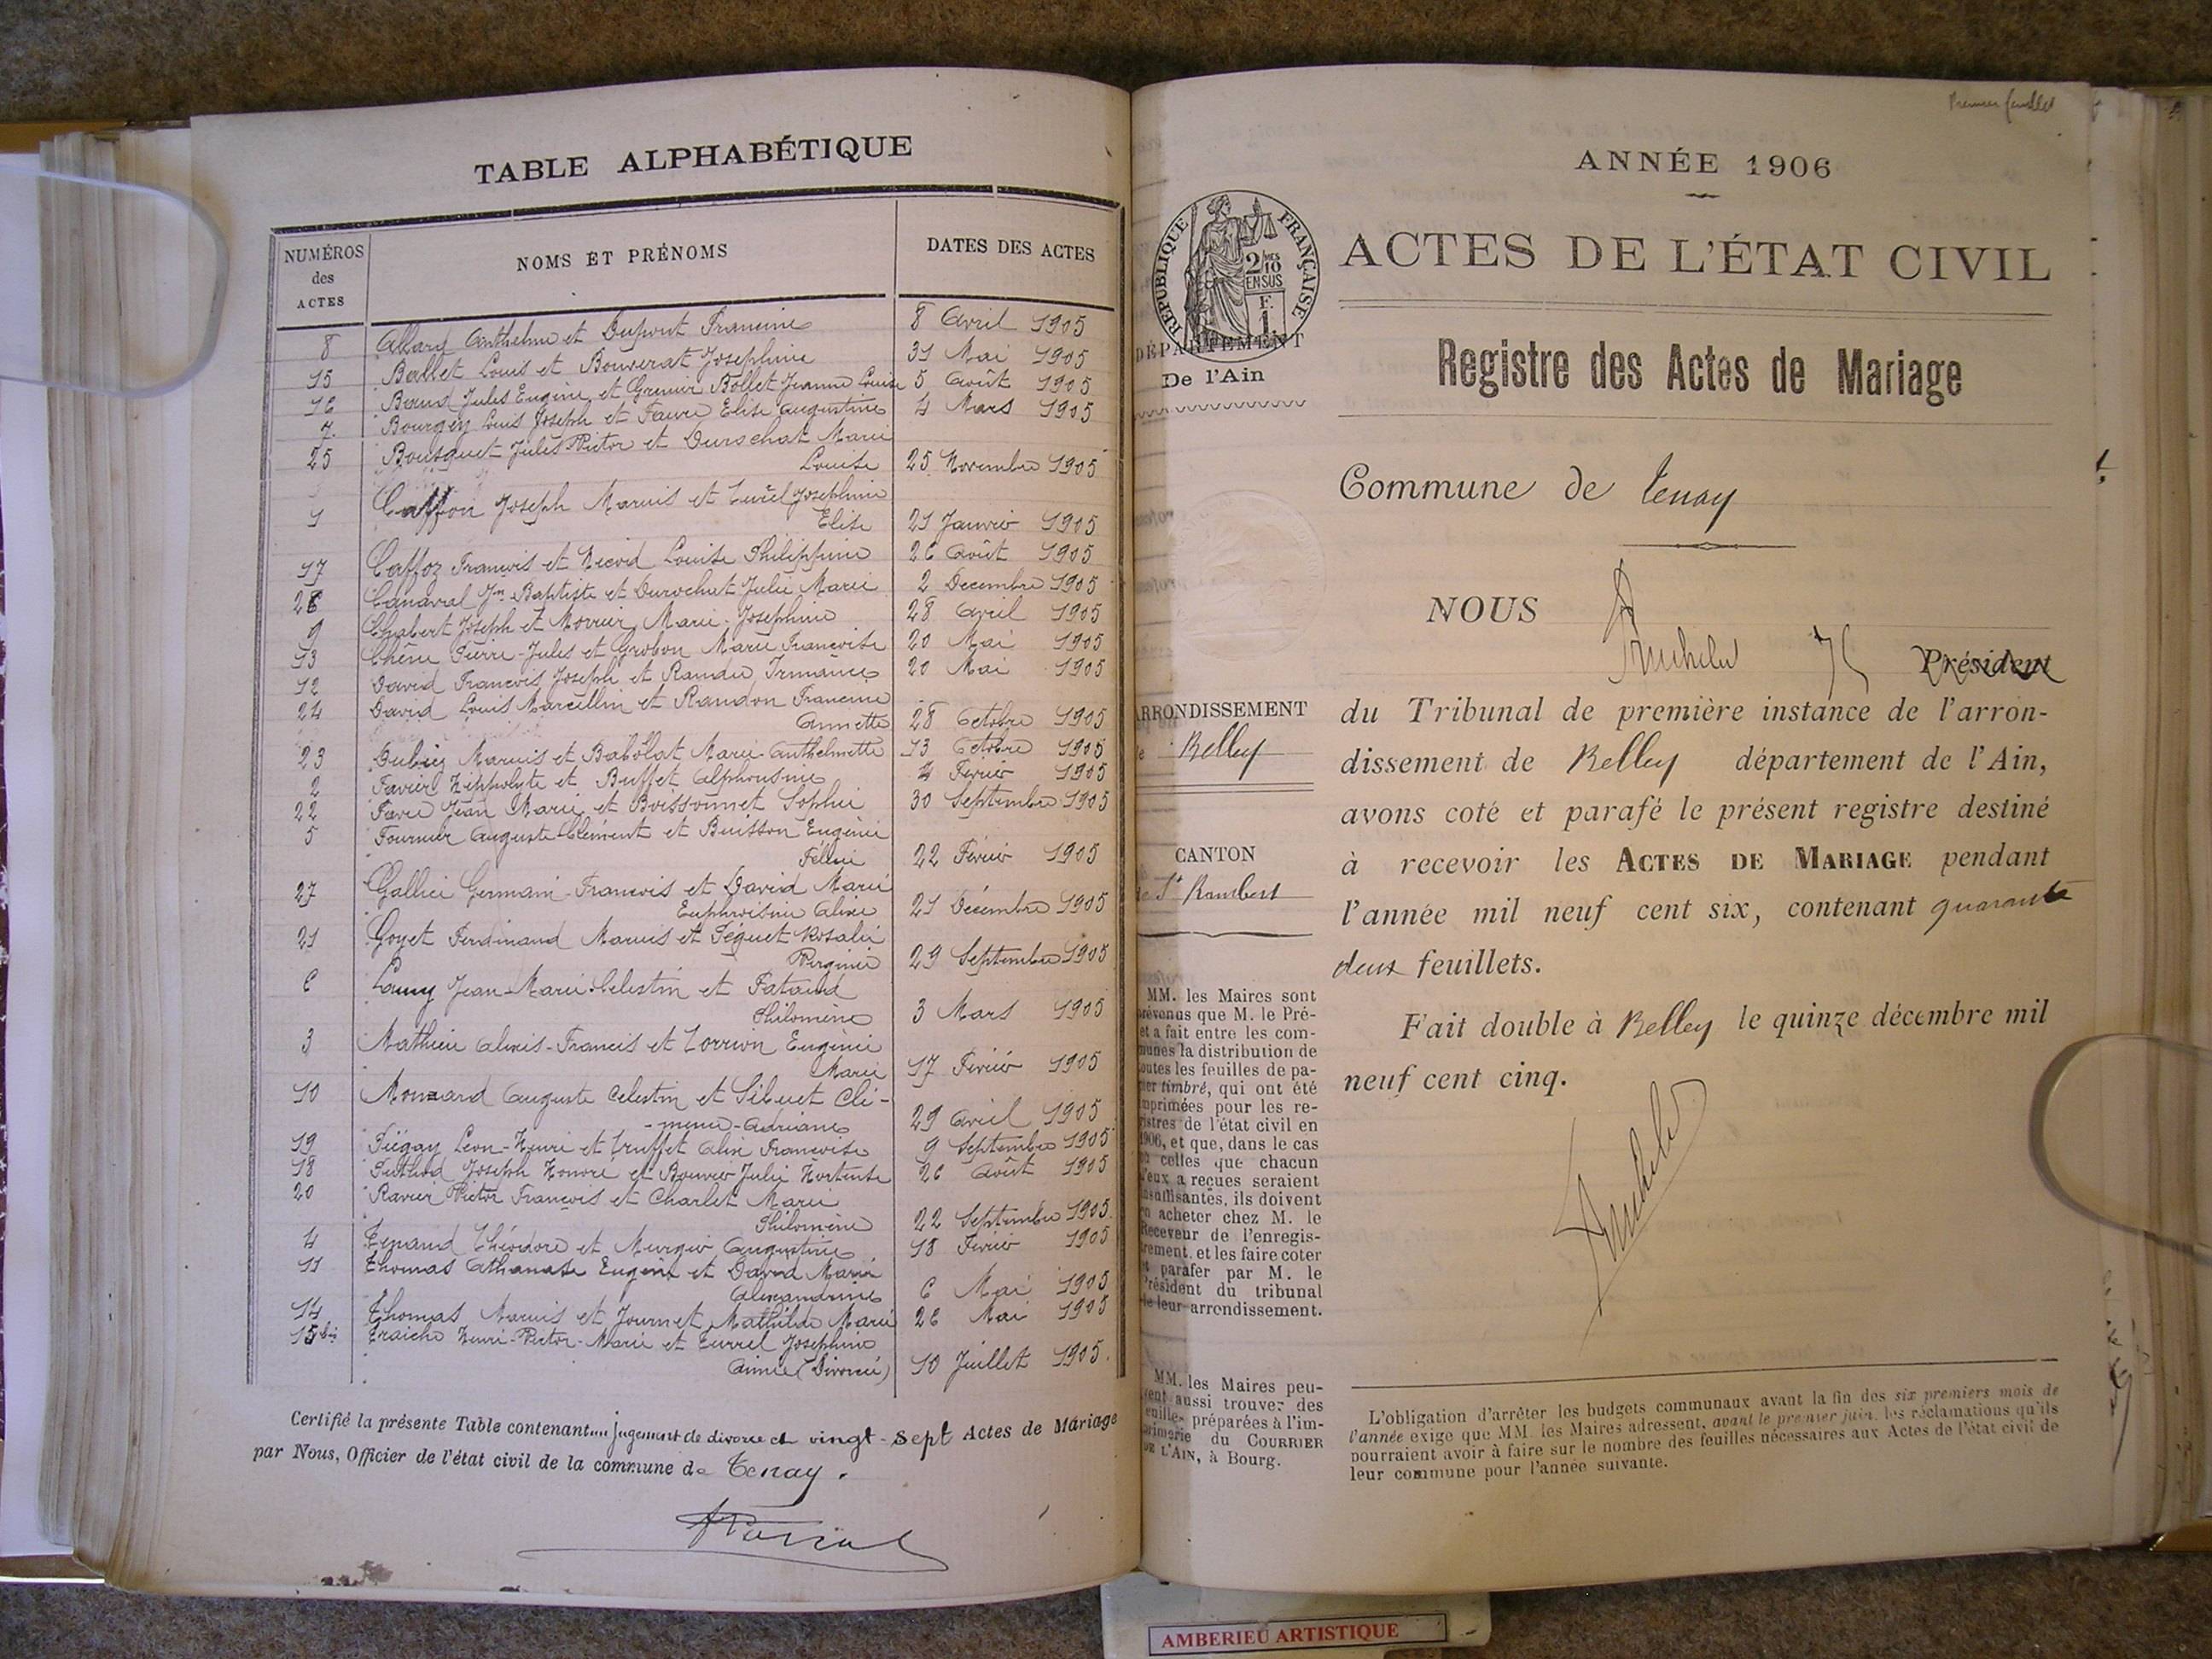 TABLE ALPHABÉTIQUE
NUMÉROS des ACTES
NOMS ET PRÉNOMS
DATES DES ACTES
8 Allard Anthelme et Dupont Francine 8 Avril 1905
15 Ballet Louis et Bouverat Josephine 31 Mai 1905
16 Jules Eugène et Grenier Bollet Jeanne Louise 5 Août 1905
7 Bourgey Louis Joseph et Favre Elise Augustine 4 Mars 1905
25 Bousquet Jules Victor et Durochat Marie
Louise 25 Novembre 1905
1 Caffon Joseph Marius et Turel Josephine
Elise 21 Janvier 1905
17 Caffoz François et Louise Philippine 26 Août 1905
26 Canaval Jn Baptiste et Durochat Julie Marie 2 Decembre 1905
9 Chabert Joseph et Marie-Josephine 28 Avril 1905
13 Chêne Pierre-Jules et Grobon Marie Françoise 20 Mai 1905
12 David François Joseph et Irmance 20 Mai 1905
24 David Louis Marcellin et Randon Francine
Annette 28 Octobre 1905
23 Marius et Babolat Marie-Anthelmette 13 Octobre 1905
2 Favier Hippolyte et Buffet Alphonsine 4 Février 1905
22 Favre Jean Marie et Boissonnet Sophie 30 Septembre 1905
5 Fournier Auguste-Clément et Buisson Eugènie
Félixie 22 Février 1905
27 Gallici Germain-François et David Marie
Euphroisine Alixe 21 Décembre 1905
21 Goyet Ferdinand Marius et Péguet Rosalie
Virginie 29 Septembre 1905
6 Jean-Marie-Celestin et
Philomène 3 Mars 1905
3 Mathieu Alexis-Francis et Eugènie
Marie 17 Février 1905
10 Auguste Celestin et Sibuet Clé-
-mence-Adriane 29 Avril 1905
19 Piégay Léon-Henri et Truffet Alix Françoise 9 Septembre 1905
18 Puthod Joseph Honoré et Bouvier Julie Hortense 26 Août 1905
20 Ravier Victor François et Charlet Marie
Philomène 22 Septembre 1905
4 Tenand Théodore et Murgier Augustine 18 Février 1905
11 Thomas Athanase Eugène et David Marie
Alexandrine 6 Mai 1905
14 Thomas Marius et Journet Mathilde Marie 26 Mai 1905
15 bis Traiche Henri-Victor-Marie et Turrel Josephine
Aimée (Divorcé) 10 Juillet 1905.
Certifié la présente Table contenant un jugement de divorce et vingt-sept Actes de Mariage
par Nous, Officier de l'état civil de la commune de Tenay.
Premier feuillet
ANNÉE 1906
ACTES DE L'ÉTAT CIVIL
RÉPUBLIQUE FRANÇAISE
2/10 EN SUS
F. 1.
DÉPARTEMENT
De l'Ain
Registre des Actes de Mariage
Commune de Tenay
NOUS
Président
du Tribunal de première instance de l'arron-
dissement de Belley département de l'Ain,
avons coté et parafé le présent registre destiné
à recevoir les ACTES DE MARIAGE pendant
l'année mil neuf cent six, contenant quarante
deux feuillets.
Fait double à Belley le quinze décembre mil
neuf cent cinq.
ARRONDISSEMENT
de Belley
CANTON
de St Rambert
MM. les Maires sont
prévenus que M. le Pré-
et a fait entre les com-
munes la distribution de
toutes les feuilles de pa-
pier timbré, qui ont été
imprimées pour les re-
gistres de l'état civil en
1906, et que, dans le cas
où celles que chacun
d'eux a reçues seraient
insuffisantes, ils doivent
en acheter chez M. le
Receveur de l'enregis-
trement, et les faire coter
et parafer par M. le
Président du tribunal
de leur arrondissement.
MM. les Maires peu-
vent aussi trouver des
feuilles préparées à l'im-
primerie du COURRIER
DE L'AIN, à Bourg.
L'obligation d'arrêter les budgets communaux avant la fin des six premiers mois de
l'année exige que MM. les Maires adressent, avant le premier juin, les réclamations qu'ils
pourraient avoir à faire sur le nombre des feuilles nécessaires aux Actes de l'état civil de
leur commune pour l'année suivante.
AMBERIEU ARTISTIQUE